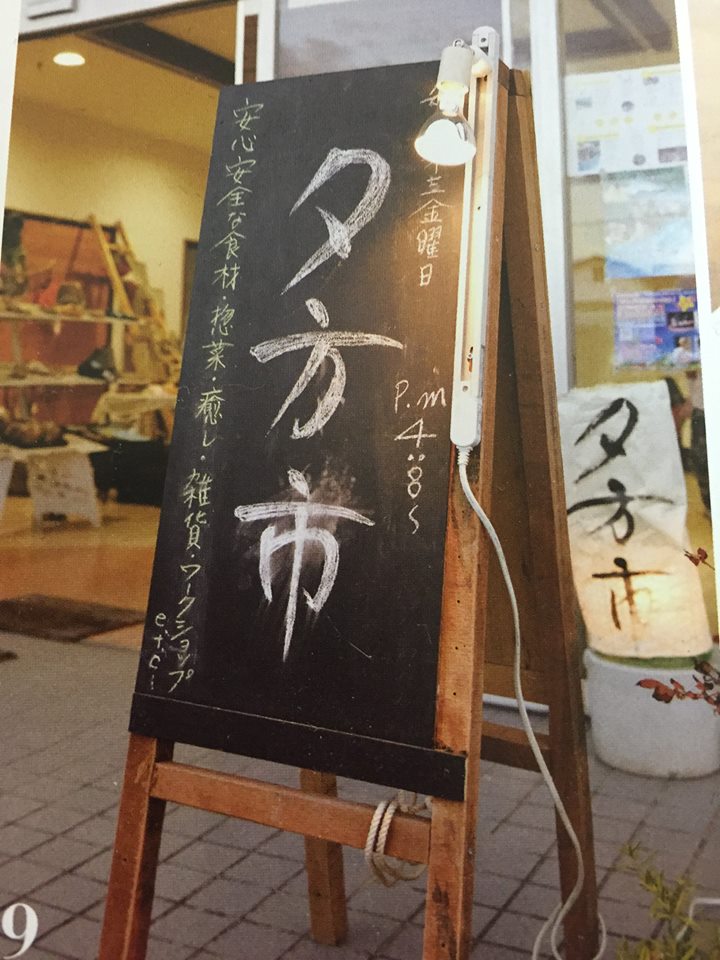 三金曜日
P.m 4:8〜
夕方市
安心安全な食材・惣菜・癒し・雑貨・ワークショップ
e.t.c…
夕方市
9